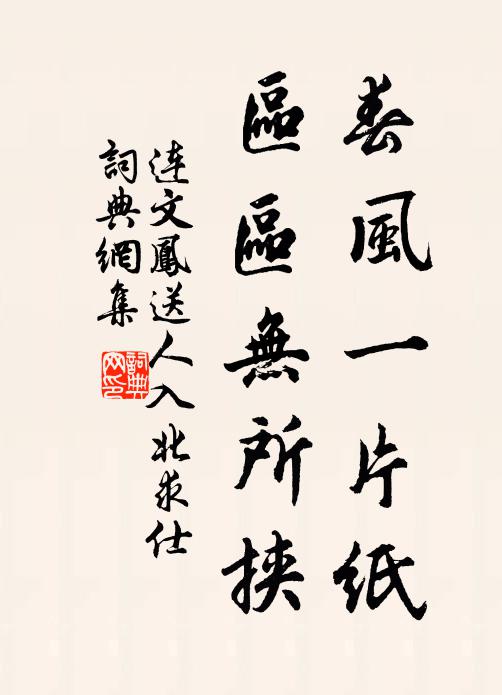 春風一片紙
區區無所挾
連文鳳送人入北求仕
詞典網集
詞典网印